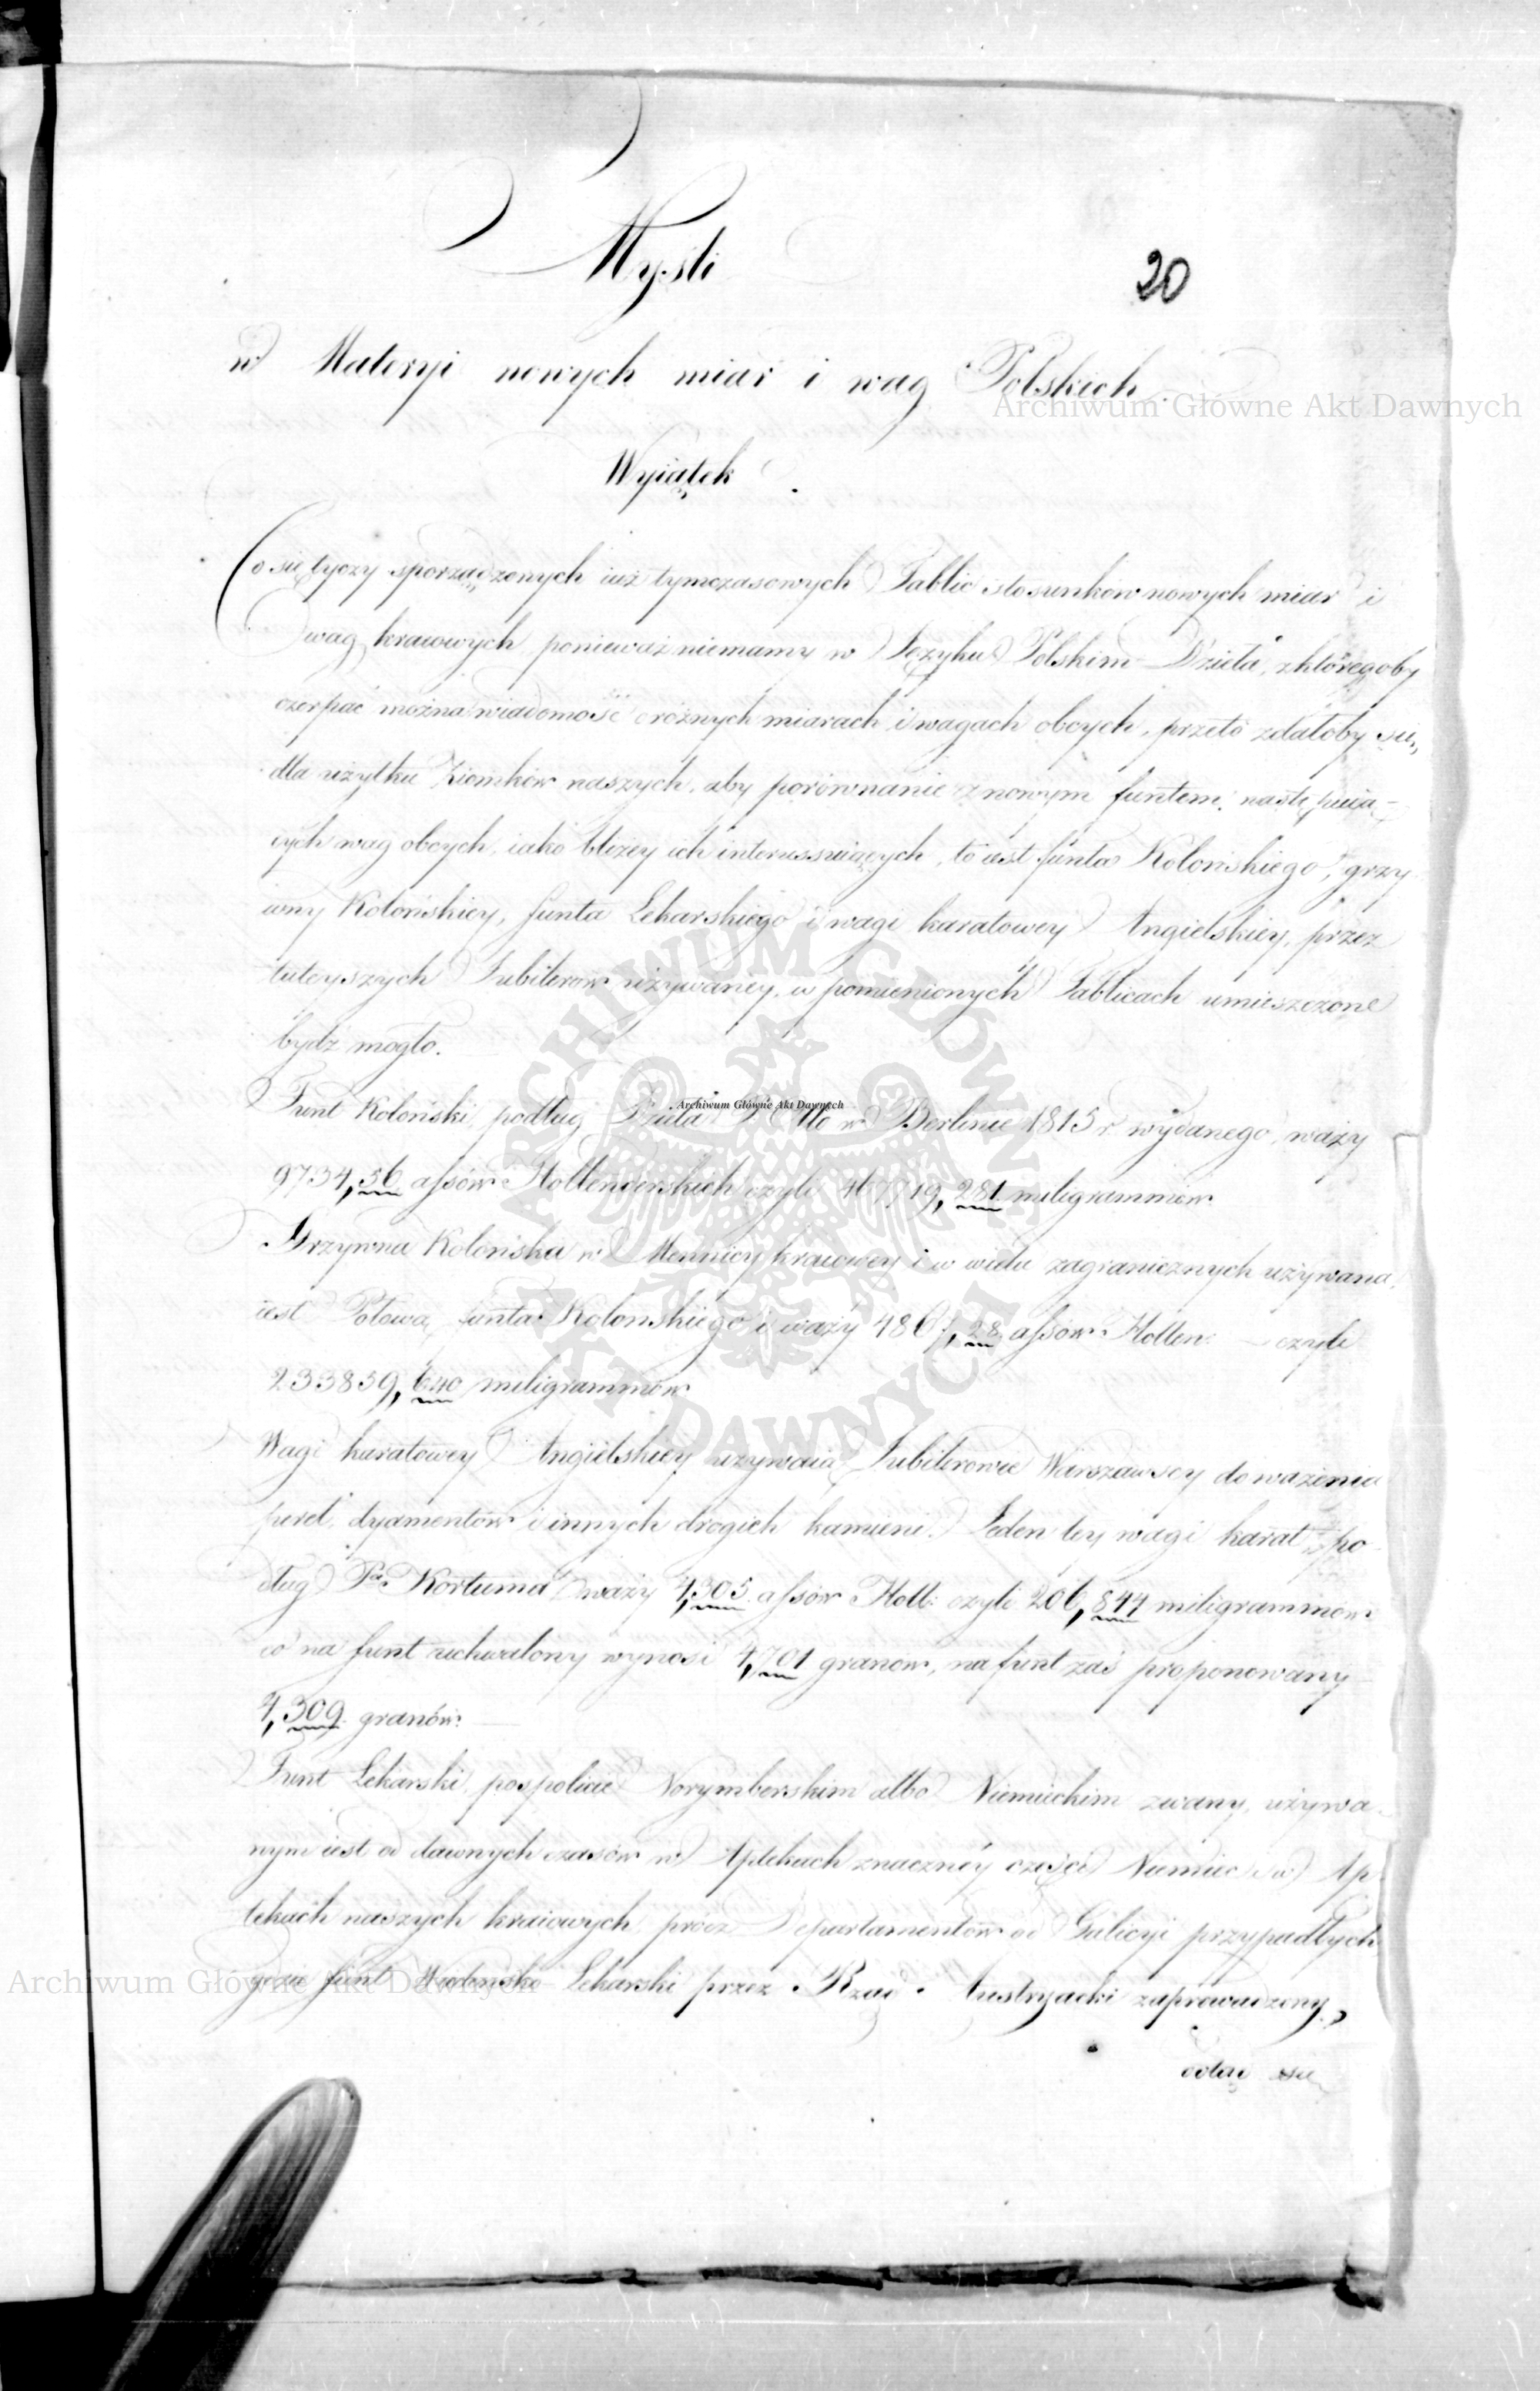 20
Mysli
w Materyi nowych miar i wag Polskich.
Wyiątek.
Co się tyczy sporządzonych iuż tymczasowych Tablic stosunków nowych miar i
wag kraiowych, ponieważ niemamy w Języku Polskim Dzieła, z któregoby
czerpać można wiadomość o różnych miarach i wagach obcych, przeto zdałoby się,
dla użytku Ziomków naszych, aby porównanie z nowym funtem, następuią-
cych wag obcych, iako bliżey ich interessuiących, to iest funta Kolońskiego, grzy-
wny Kolońskiey, funta Lekarskiego i wagi karatowey Angielskiey, przez
tuteyszych Jubilerów używaney, w pomienionych Tablicach umieszczone
bydź mogło.
Funt Koloński, podług Dzieła w Berlinie 1815 r. wydanego, waży
9734,56 assów Hollenderskich czyli 467719,281 miligrammów
Grzywna Kolońska w Mennicy kraiowey i w wielu zagranicznych używana,
iest Połową funta Kolonskiego i waży 4867,28 assów Hollen: czyli
233859,640 miligrammów
Wagi karatowey Angielskiey używaią Jubilerowie Warszawscy do ważenia
pereł, dyamentów i innych drogich kamieni. Jeden tey wagi karat po-
dług Pa Kortuma waży 4,305 assów Holl: czyli 206,844 miligrammów
co na funt uchwalony wynosi 4,701 granów, na funt zaś proponowany
4,309 granów.
Funt Lekarski, pospolicie Norymberskim albo Niemieckim zwany, używa-
nym iest od dawnych czasów w Aptekach znaczney części Niemiec i w Ap-
tekach naszych kraiowych prócz Departamentów od Galicyi przypadłych
gdzie funt Wiedeńsko Lekarski przez Rząd Austryacki zaprowadzony,
dotąd się
Archiwum Główne Akt Dawnych
Archiwum Główne Akt Dawnych
ARCHIWUM GŁÓWNE AKT DAWNYCH
Archiwum Główne Akt Dawnych